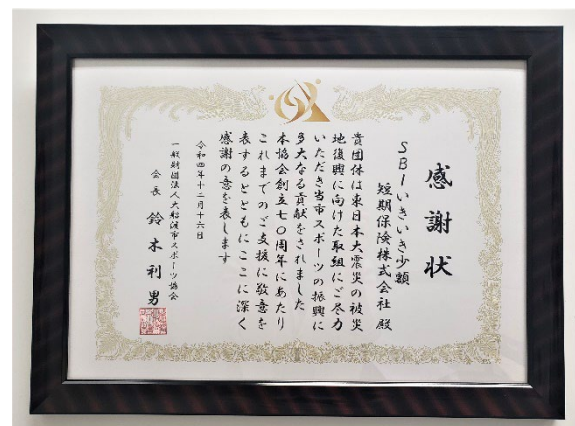 感謝状
SBIいきいき少額
短期保険株式会社 殿
貴団体は東日本大震災の被災
地復興に向けた取組にご尽力
いただき当市スポーツの振興に
多大なる貢献をされました
本協会創立七〇周年にあたり
これまでのご支援に敬意を
表するとともにここに深く
感謝の意を表します
令和四年十二月十六日
一般財団法人大船渡市スポーツ協会
会長 鈴木利男